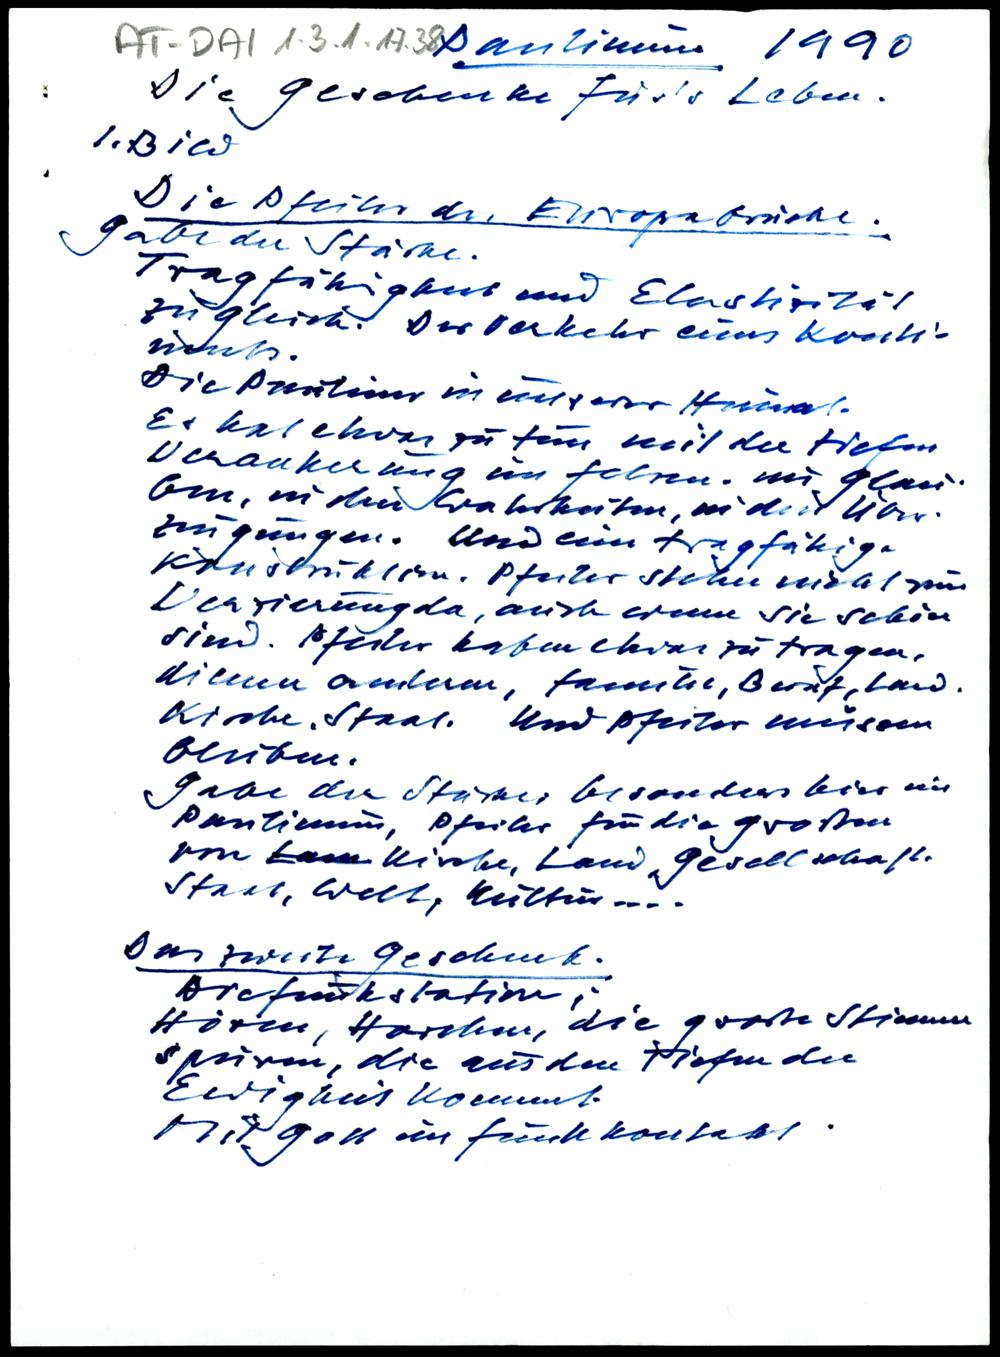 AT-DAI 1.3.1.17.38 Paulinum 1990
Die Geschenke für's Leben.
1. Bild
Die Pfeiler der Europabrücke.
Gabe der Stärke.
Tragfähigkeit und Elastizität
zugleich. Der Verkehr eines Konti-
nents.
Die Pauliner in unserer Heimat.
Es hat etwas zu tun mit der tiefen
Verankerung im Felsen. im Glau-
ben, in den Wahrheiten, in den Über-
zeugungen. Und eine tragfähige
Konstruktion. Pfeiler stehen nicht zur
Verzierung da, auch wenn sie schön
sind. Pfeiler haben etwas zu tragen,
dienen anderen, Familie, Beruf, Land.
Kirche, Staat. Und Pfeiler müssen
bleiben.
Gabe der Stärke, besonders hier im
Paulinum, Pfeiler für die großen
von Kirche, Land, Gesellschaft.
Staat, Welt, Kultur....
Das zweite Geschenk.
Die Funkstation;
Hören, Horchen, die große Stimme
spüren, die aus den Tiefen der
Ewigkeit kommt.
Mit Gott im Funkkontakt.